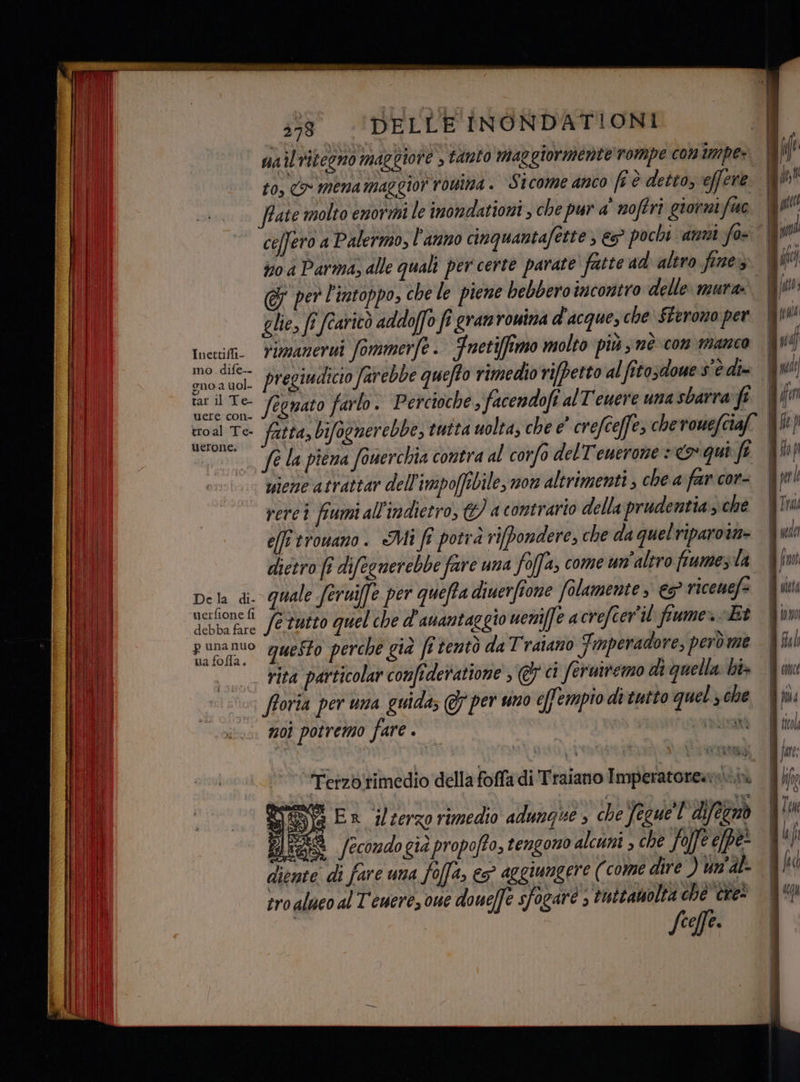 278 DELLE INONDATIONI
uail ritegno maggiore, tanto maggiormente rompe con impe-
to, & mena maggior rouina. Sicome anco ſi è detto, eſſere
ſtate molto enormi le inondationi, che pur a' noſtri giorni ſuc
ceſſero a Palermo, l'anno cinquantaſette, & pochi anni ſo-
no a Parma, alle quali per certe parate fatte ad altro fine,
& per l'intoppo, che le piene hebbero incontro delle mura-
glie, ſi ſcaricò addoſſo ſi gran rouina d'acque, che ſterono per
rimanerui ſommerſe. Inettiſſimo molto più, nè con manco
pregiudicio ſarebbe queſto rimedio riſpetto al ſito, doue s'è di-
ſegnato farlo. Percioche, facendoſi al Teuere una sbarra ſi
fatta, biſognerebbe, tutta uolta, che e' creſceſſe, che roueſciaſ
ſe la piena ſouerchia contra al corſo del Teuerone: & qui ſi
uiene a trattar dell'impoſſibile, non altrimenti, che a far cor-
rere i fiumi all'indietro, & a contrario della prudentia, che
eſſi trouano. Mi ſi potrà riſpondere, che da quel riparo in-
dietro ſi diſegnerebbe fare una foſſa, come un'altro fiume, la
quale ſeruiſſe per queſta diuerſione ſolamente, & riceueſ-
ſe tutto quel che d'auantaggio ueniſſe a creſcer'il fiume. Et
queſto perche già ſi tentò da Traiano Imperadore, però me
rita particolar conſideratione, & ci ſeruiremo di quella hi-
ſtoria per una guida, & per uno eſſempio di tutto quel, che
noi potremo fare.
Inettiſſi-
mo diſe--
gno a uol-
tar il Te-
uere con-
tro al Te-
uerone.
De la di-
uerſione ſi
debba fare
p una nuo
ua foſſa.
Terzo rimedio della foſſa di Traiano Imperatore.
PER il terzo rimedio adunque, che ſegue'l diſegno
ſecondo già propoſto, tengono alcuni, che foſſe eſpe-
diente di fare una foſſa, & aggiungere (come dire) un'al-
tro alueo al Teuere, oue doueſſe sfogare, tuttauolta che cre-
ſceſſe.